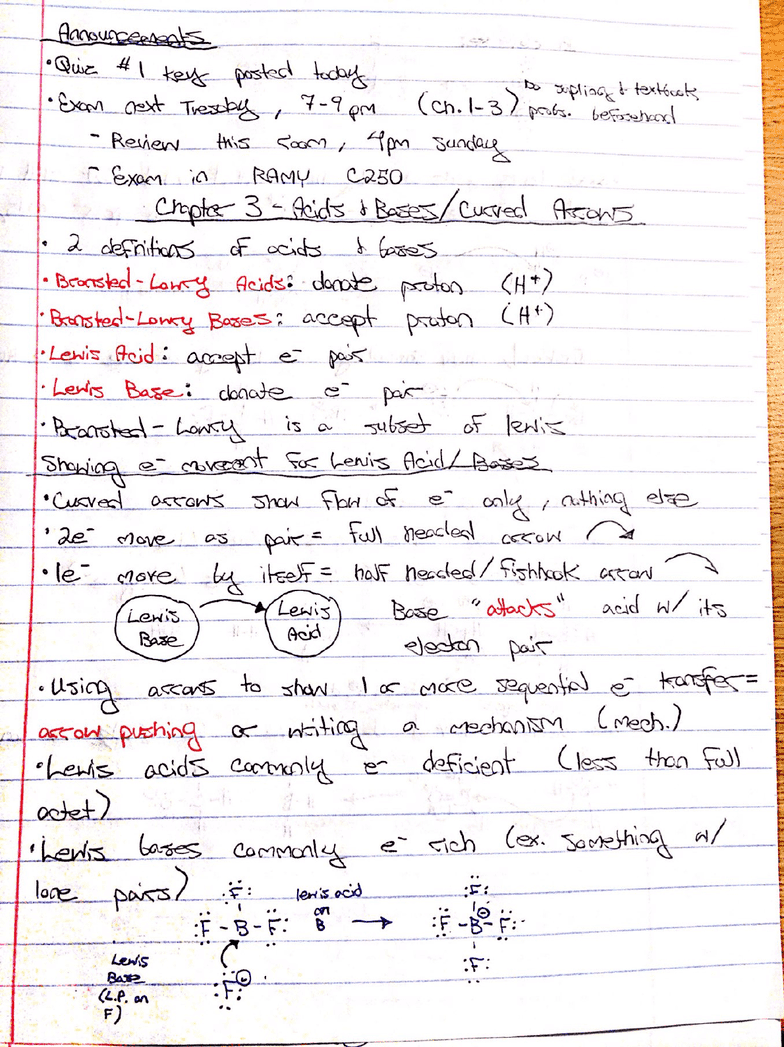 Announcements
•Quiz #1 key posted today
•Exam next Tuesday, 7-9pm (ch. 1-3) Do sapling & textbook
probs. beforehand
- Review this zoom, 4pm Sunday
- Exam in RAMY C250
Chapter 3 - Acids & Bases/Curved Arrows
• 2 definitions of acids & bases
•Bronsted-Lowry Acids: donate proton (H+)
•Bronsted-Lowry Bases: accept proton (H+)
•Lewis Acid: accept e⁻ pair
•Lewis Base: donate e⁻ pair
•Bronsted-Lowry is a subset of lewis
Showing e⁻ movement For Lewis Acid/Bases
•Curved arrows show flow of e⁻ only, nothing else
•2e⁻ move as pair = full headed arrow
•1e⁻ move by itself = half headed/fishhook arrow
Lewis Base → Lewis Acid Base "attacks" acid w/ its
electron pair
•Using arrows to show 1 or more sequential e⁻ transfer =
arrow pushing or writing a mechanism (mech.)
•Lewis acids commonly e⁻ deficient (less than full
octet)
•Lewis bases commonly e⁻ rich (ex. something w/
lone pairs)
:F: lewis acid :F:
:F-B-F: on B → :F-B⊖-F:
Lewis :F:
Base :F:⊖
(L.P. on
F)